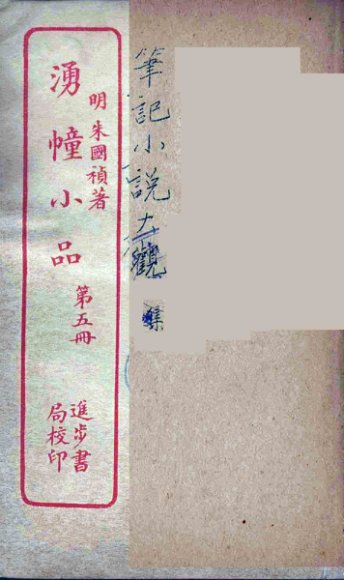 筆記小説大觀 集
明 朱國禎著
湧幢小品 第五冊
進步書局校印